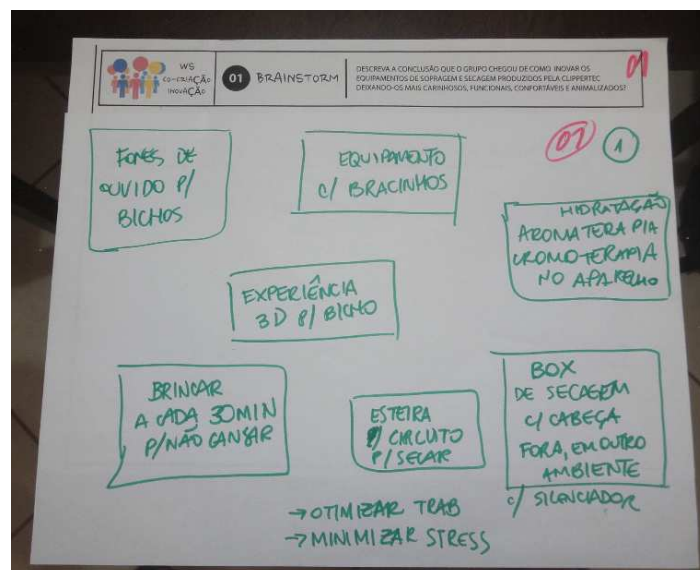 WS
CO-CRIAÇÃO
INOVAÇÃO
01 BRAINSTORM
DESCREVA A CONCLUSÃO QUE O GRUPO CHEGOU DE COMO INOVAR OS
EQUIPAMENTOS DE SOPRAGEM E SECAGEM PRODUZIDOS PELA CLIPPERTEC
DEIXANDO-OS MAIS CARINHOSOS, FUNCIONAIS, CONFORTÁVEIS E ANIMALIZADOS?
01
07
1
FONES DE
OUVIDO P/
BICHOS
EQUIPAMENTO
C/ BRACINHOS
HIDRATAÇÃO
AROMATERAPIA
CROMOTERAPIA
NO APARELHO
EXPERIÊNCIA
3D P/ BICHO
BRINCAR
A CADA 30MIN
P/NÃO CANSAR
ESTEIRA
P/ CIRCUITO
P/ SECAR
BOX
DE SECAGEM
C/ CABEÇA
FORA, EM OUTRO
AMBIENTE
C/ SILENCIADOR
→ OTIMIZAR TRAB
→ MINIMIZAR STRESS